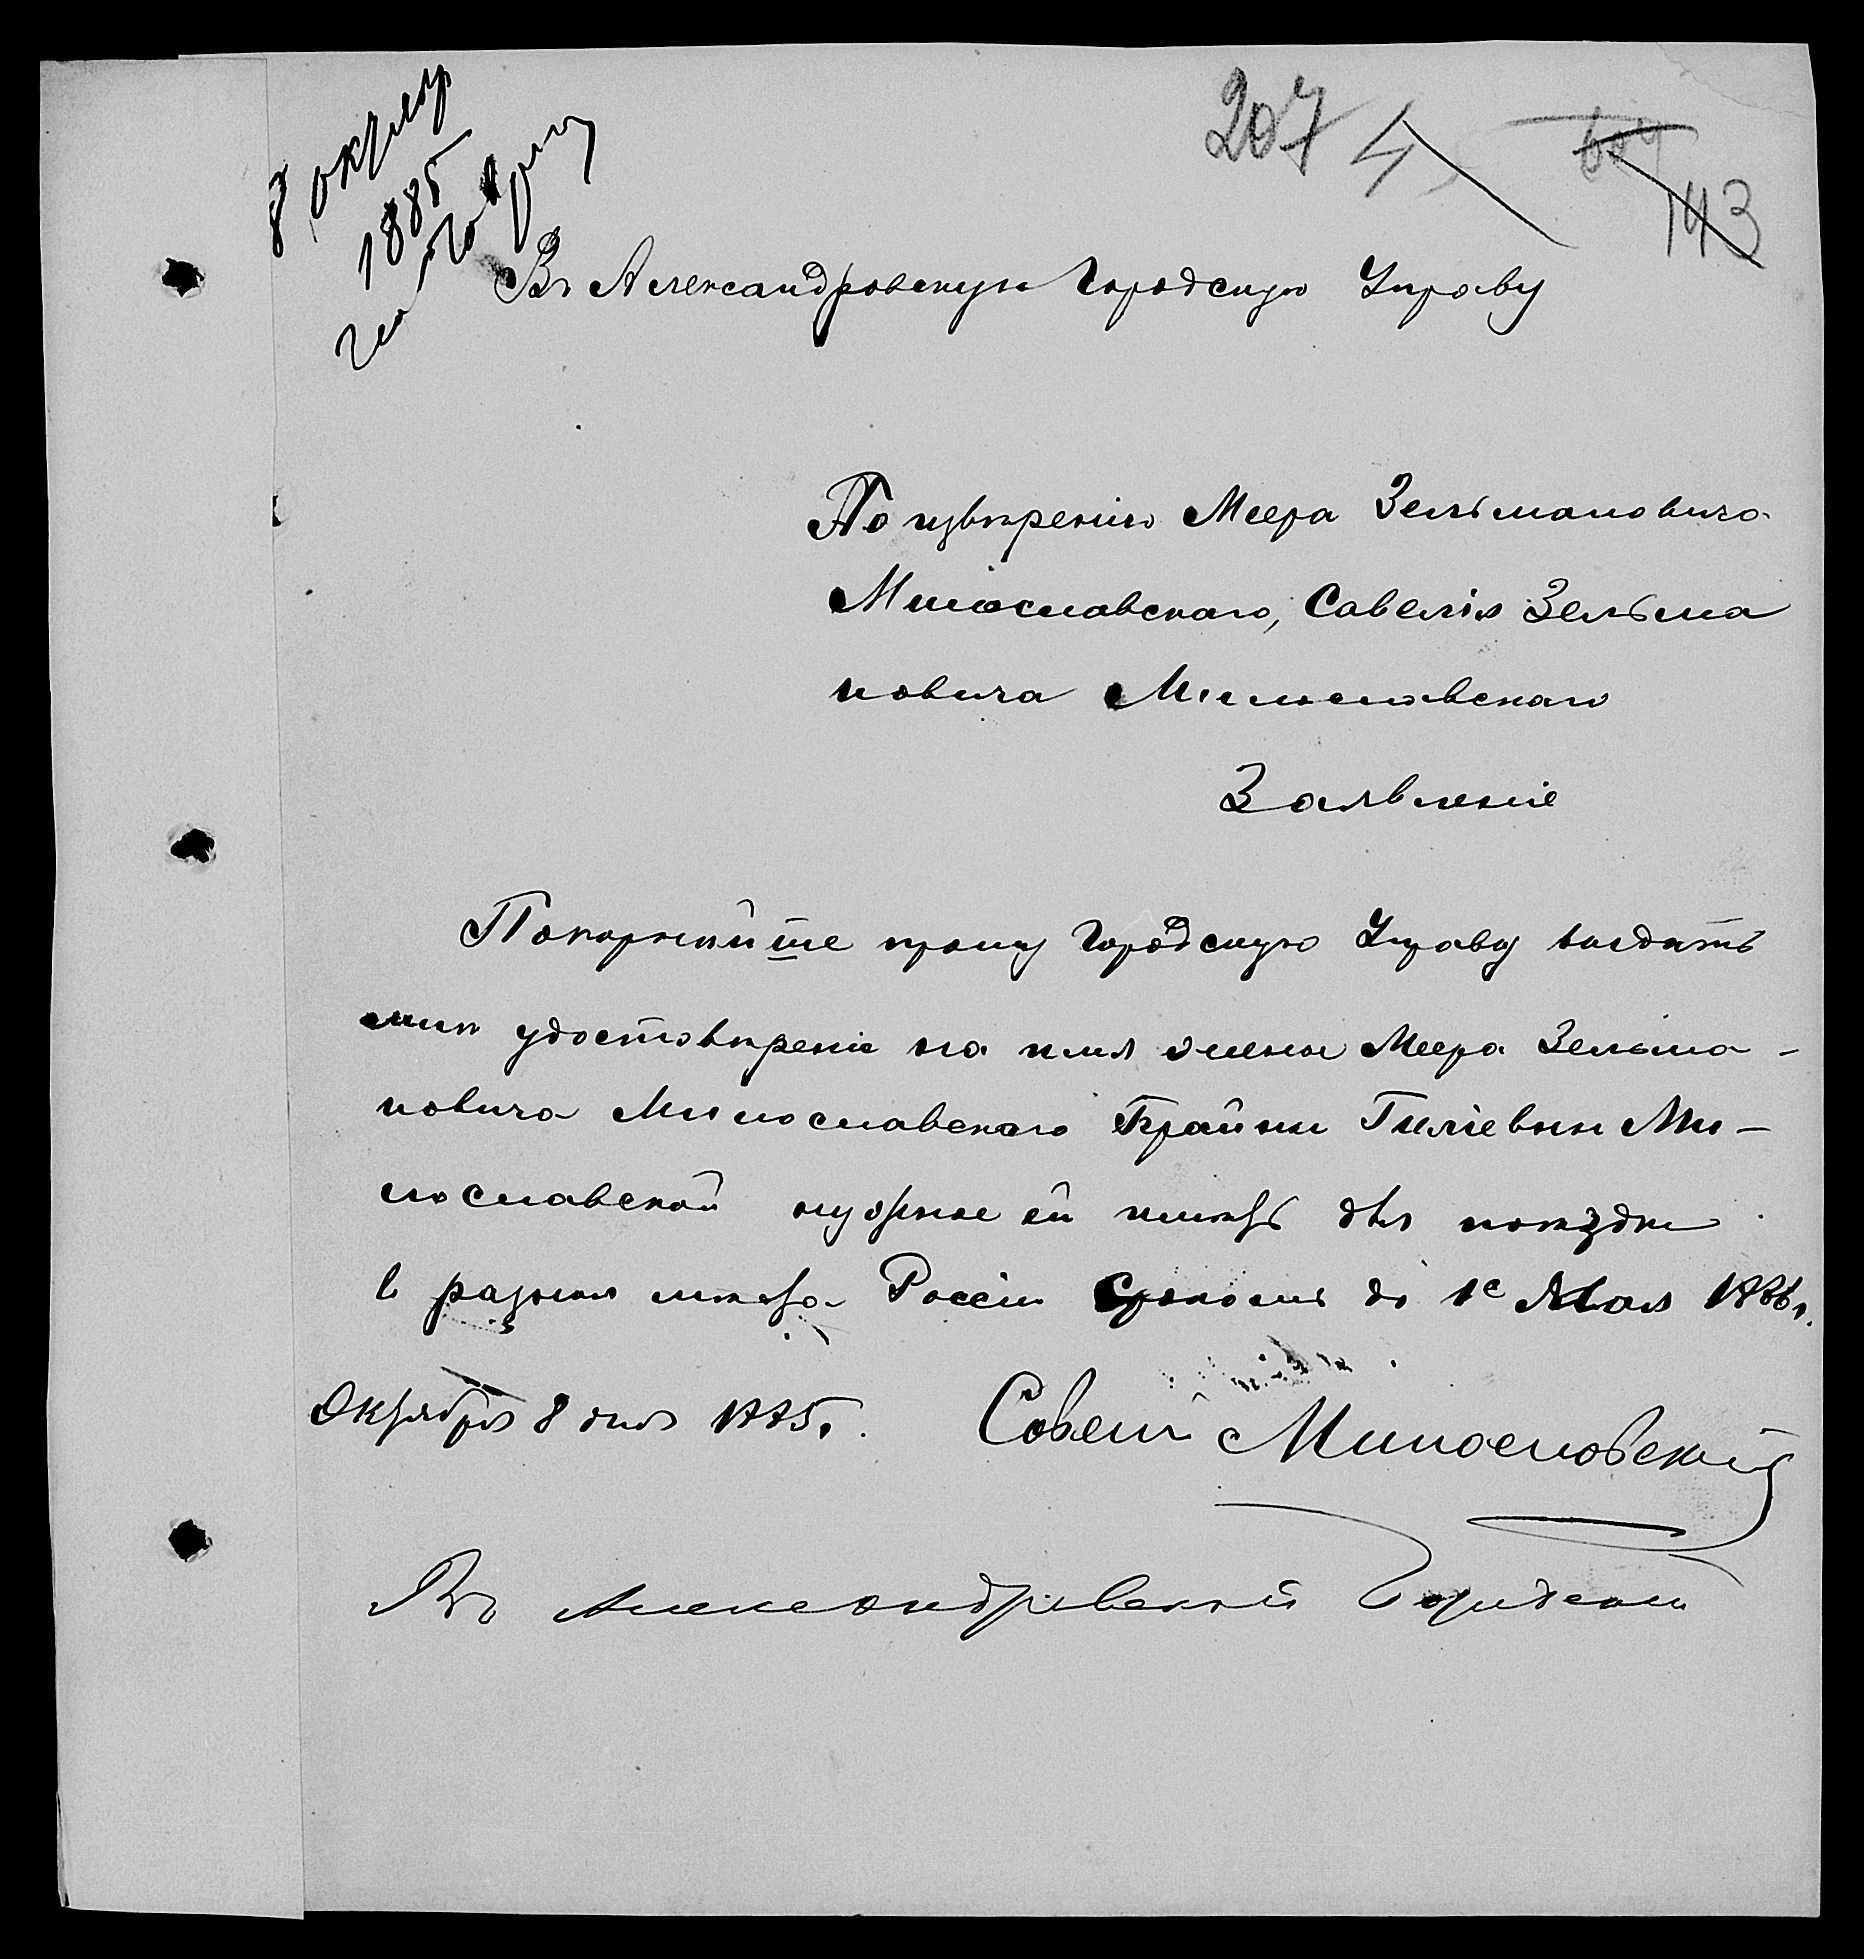 8 октяб
1885
207
143
Въ Александровскую Городскую Управу
По извѣренiю Меера Зельмановича
Милославскаго, Савелiя Зельма
новича Милославскаго
Заявленiе
Покорнѣйше прошу Городскую Управу выдать
мнѣ удостовѣренiе на имя жены Меера Зельма-
новича Милославскаго Брайны Гилiевны Ми-
лославской нужное ей видъ для поѣздки
в разныя мѣста Россiи срокомъ до 1е Мая 1886 г.
Октября 8 дня 1885 г. Савелiй Милославскiй
Въ Александровской Городской